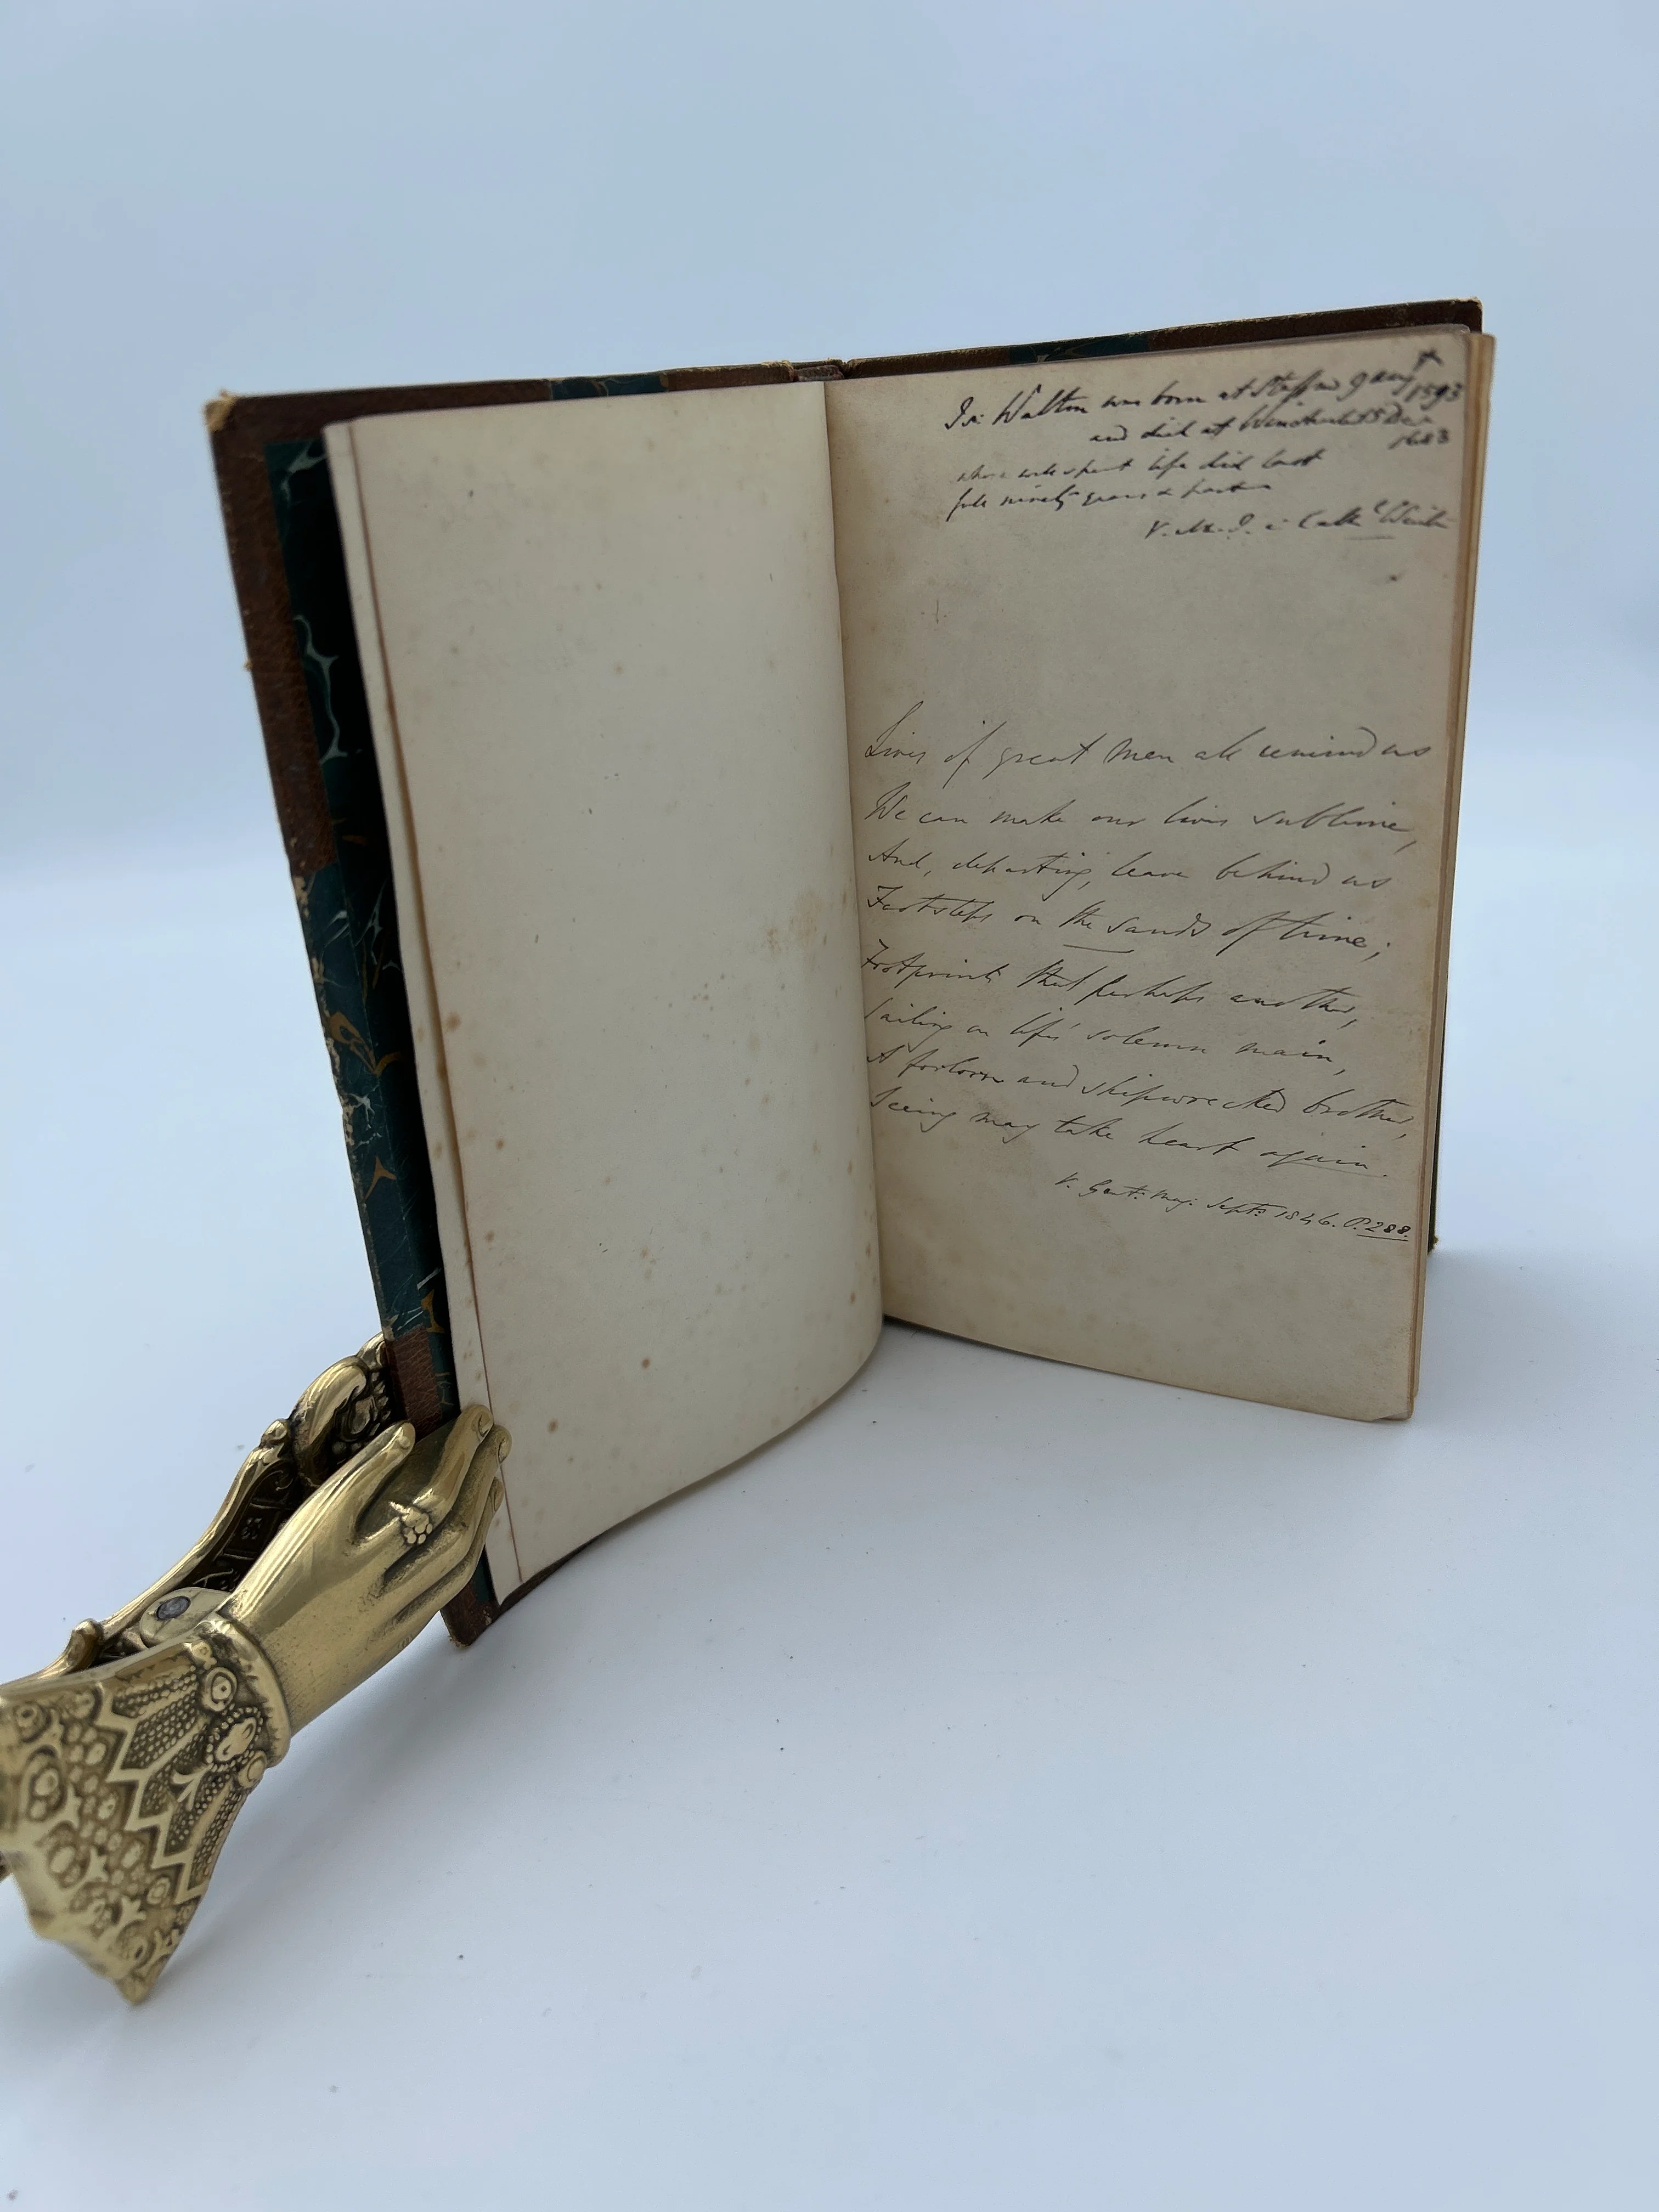 Is: Walton was born at Stafford 9 Aug 1593
and died at Winchester 15 Dec
1683
whose well spent life did last
full ninety years & past
V. M. I. in Cath:
Lives of great Men all remind us
We can make our lives sublime,
And, departing, leave behind us
Footsteps on the sands of time;
Footprints that perhaps another,
Sailing on life's solemn main,
A forlorn and shipwrecked brother,
Seeing may take heart again.
V. Gent: Mag: Sept: 1846. P. 288.